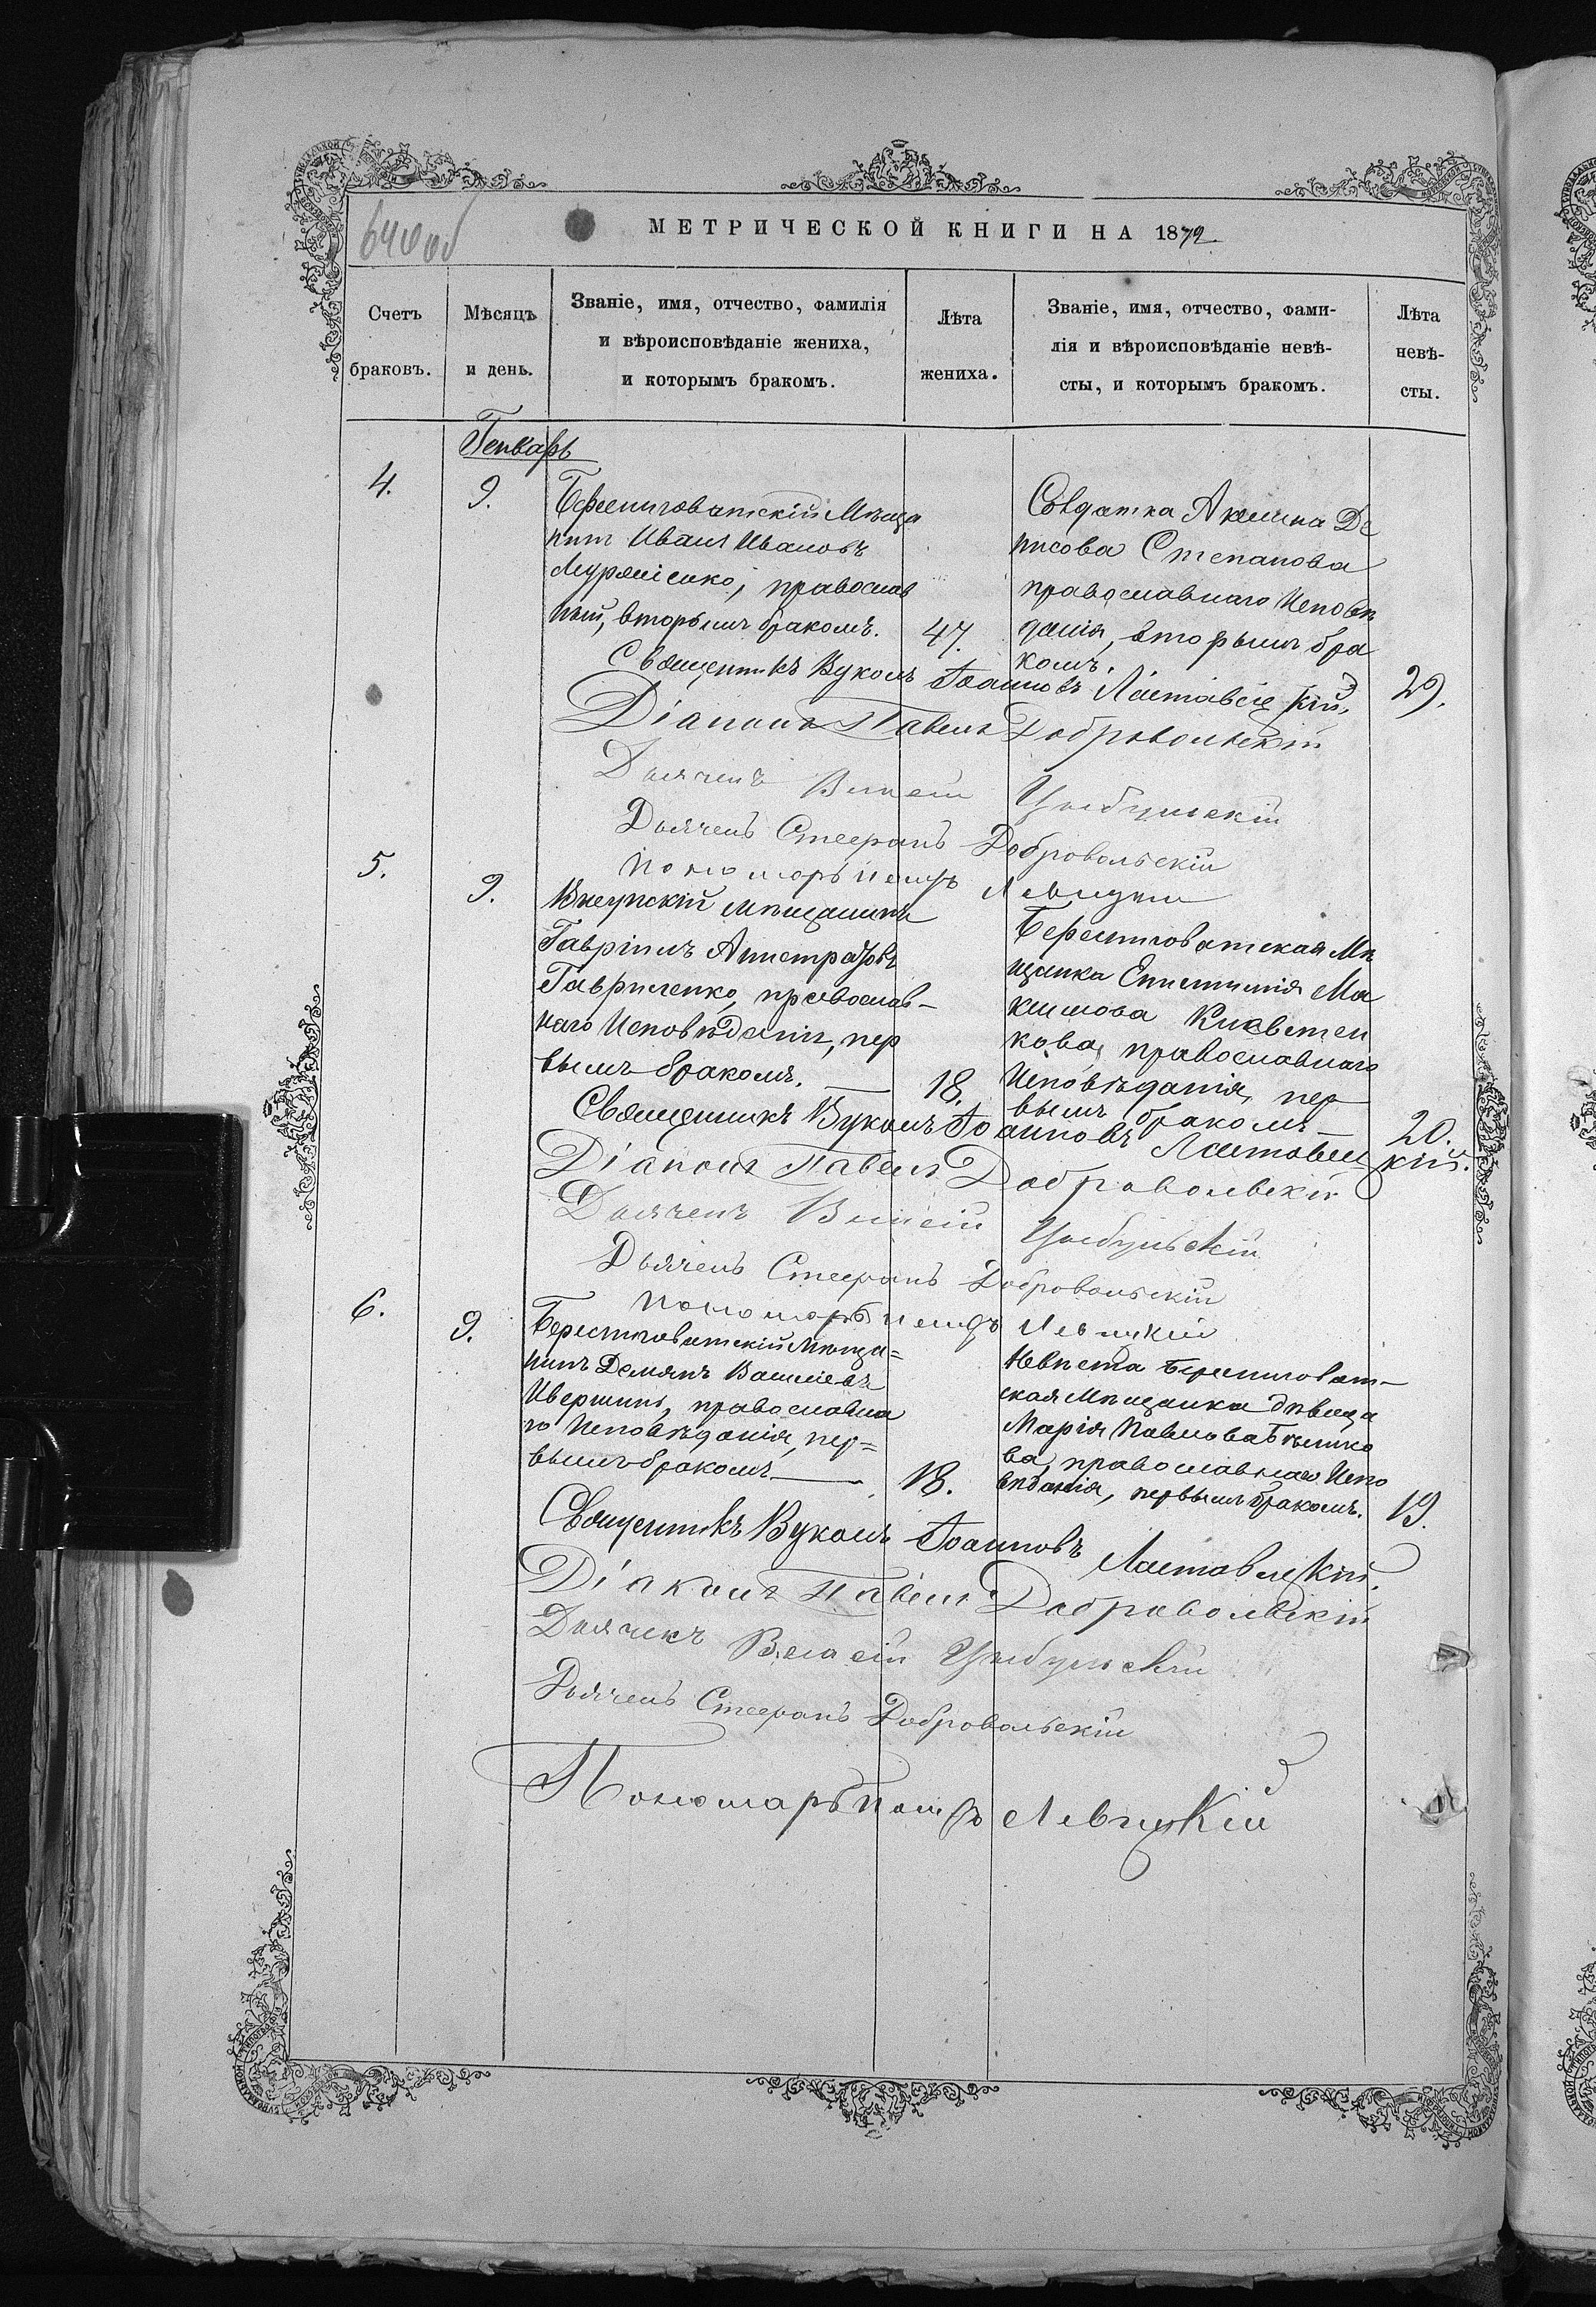 640 об
МЕТРИЧЕСКОЙ КНИГИ НА 1872.
Счетъ
браковъ.
Мѣсяцъ
и день.
Званіе, имя, отчество, фамилія
и вѣроисповѣданіе жениха,
и которымъ бракомъ.
Лѣта
жениха.
Званіе, имя, отчество, фами-
лія и вѣроисповѣданіе невѣ-
сты, и которымъ бракомъ.
Лѣта
невѣ-
сты.
Генварь
4.
9.
Берестговатскій Мѣща
нинъ Иванъ Ивановъ
православ
ный, вторымъ бракомъ.
47.
Солдатка Акилина Де
нисова Степанова
православнаго Исповѣ
данія, вторымъ бра
комъ.
29.
Священникъ Вуколъ Іоанновъ Ластовецкій.
Діаконъ Павелъ Добровольскій
Дьячекъ Цыбульскій
Дьячекъ Стефанъ Добровольскій
Пономарь Петръ Левицкій
5.
9.
мѣщанинъ
Гавріилъ
Гавриленко, православ-
наго Исповѣданія, пер
вымъ бракомъ.
18.
Берестговатская Мѣ
щанка Епистимія Ма
ксимова
кова, православнаго
Исповѣданія, пер
вымъ бракомъ
20.
Священникъ Вуколъ Іоанновъ Ластовецкій.
Діаконъ Павелъ Добровольскій
Дьячекъ Цыбульскій
Дьячекъ Стефанъ Добровольскій
Пономарь Петръ Левицкій
6.
9.
Берестговатскій Мѣща=
нинъ Демянъ Василіевъ
Ивершинъ, православна
го Исповѣданія, пер=
вымъ бракомъ
18.
Невѣста Берестговат-
ская Мѣщанка дѣвица
Марія Павлова
ва, православнаго Испо
вѣданія, первымъ бракомъ.
19.
Священникъ Вуколъ Іоанновъ Ластовецкій.
Діаконъ Павелъ Добровольскій
Дьячекъ Цыбульскій
Дьячекъ Стефанъ Добровольскій
Пономарь Петръ Левицкій